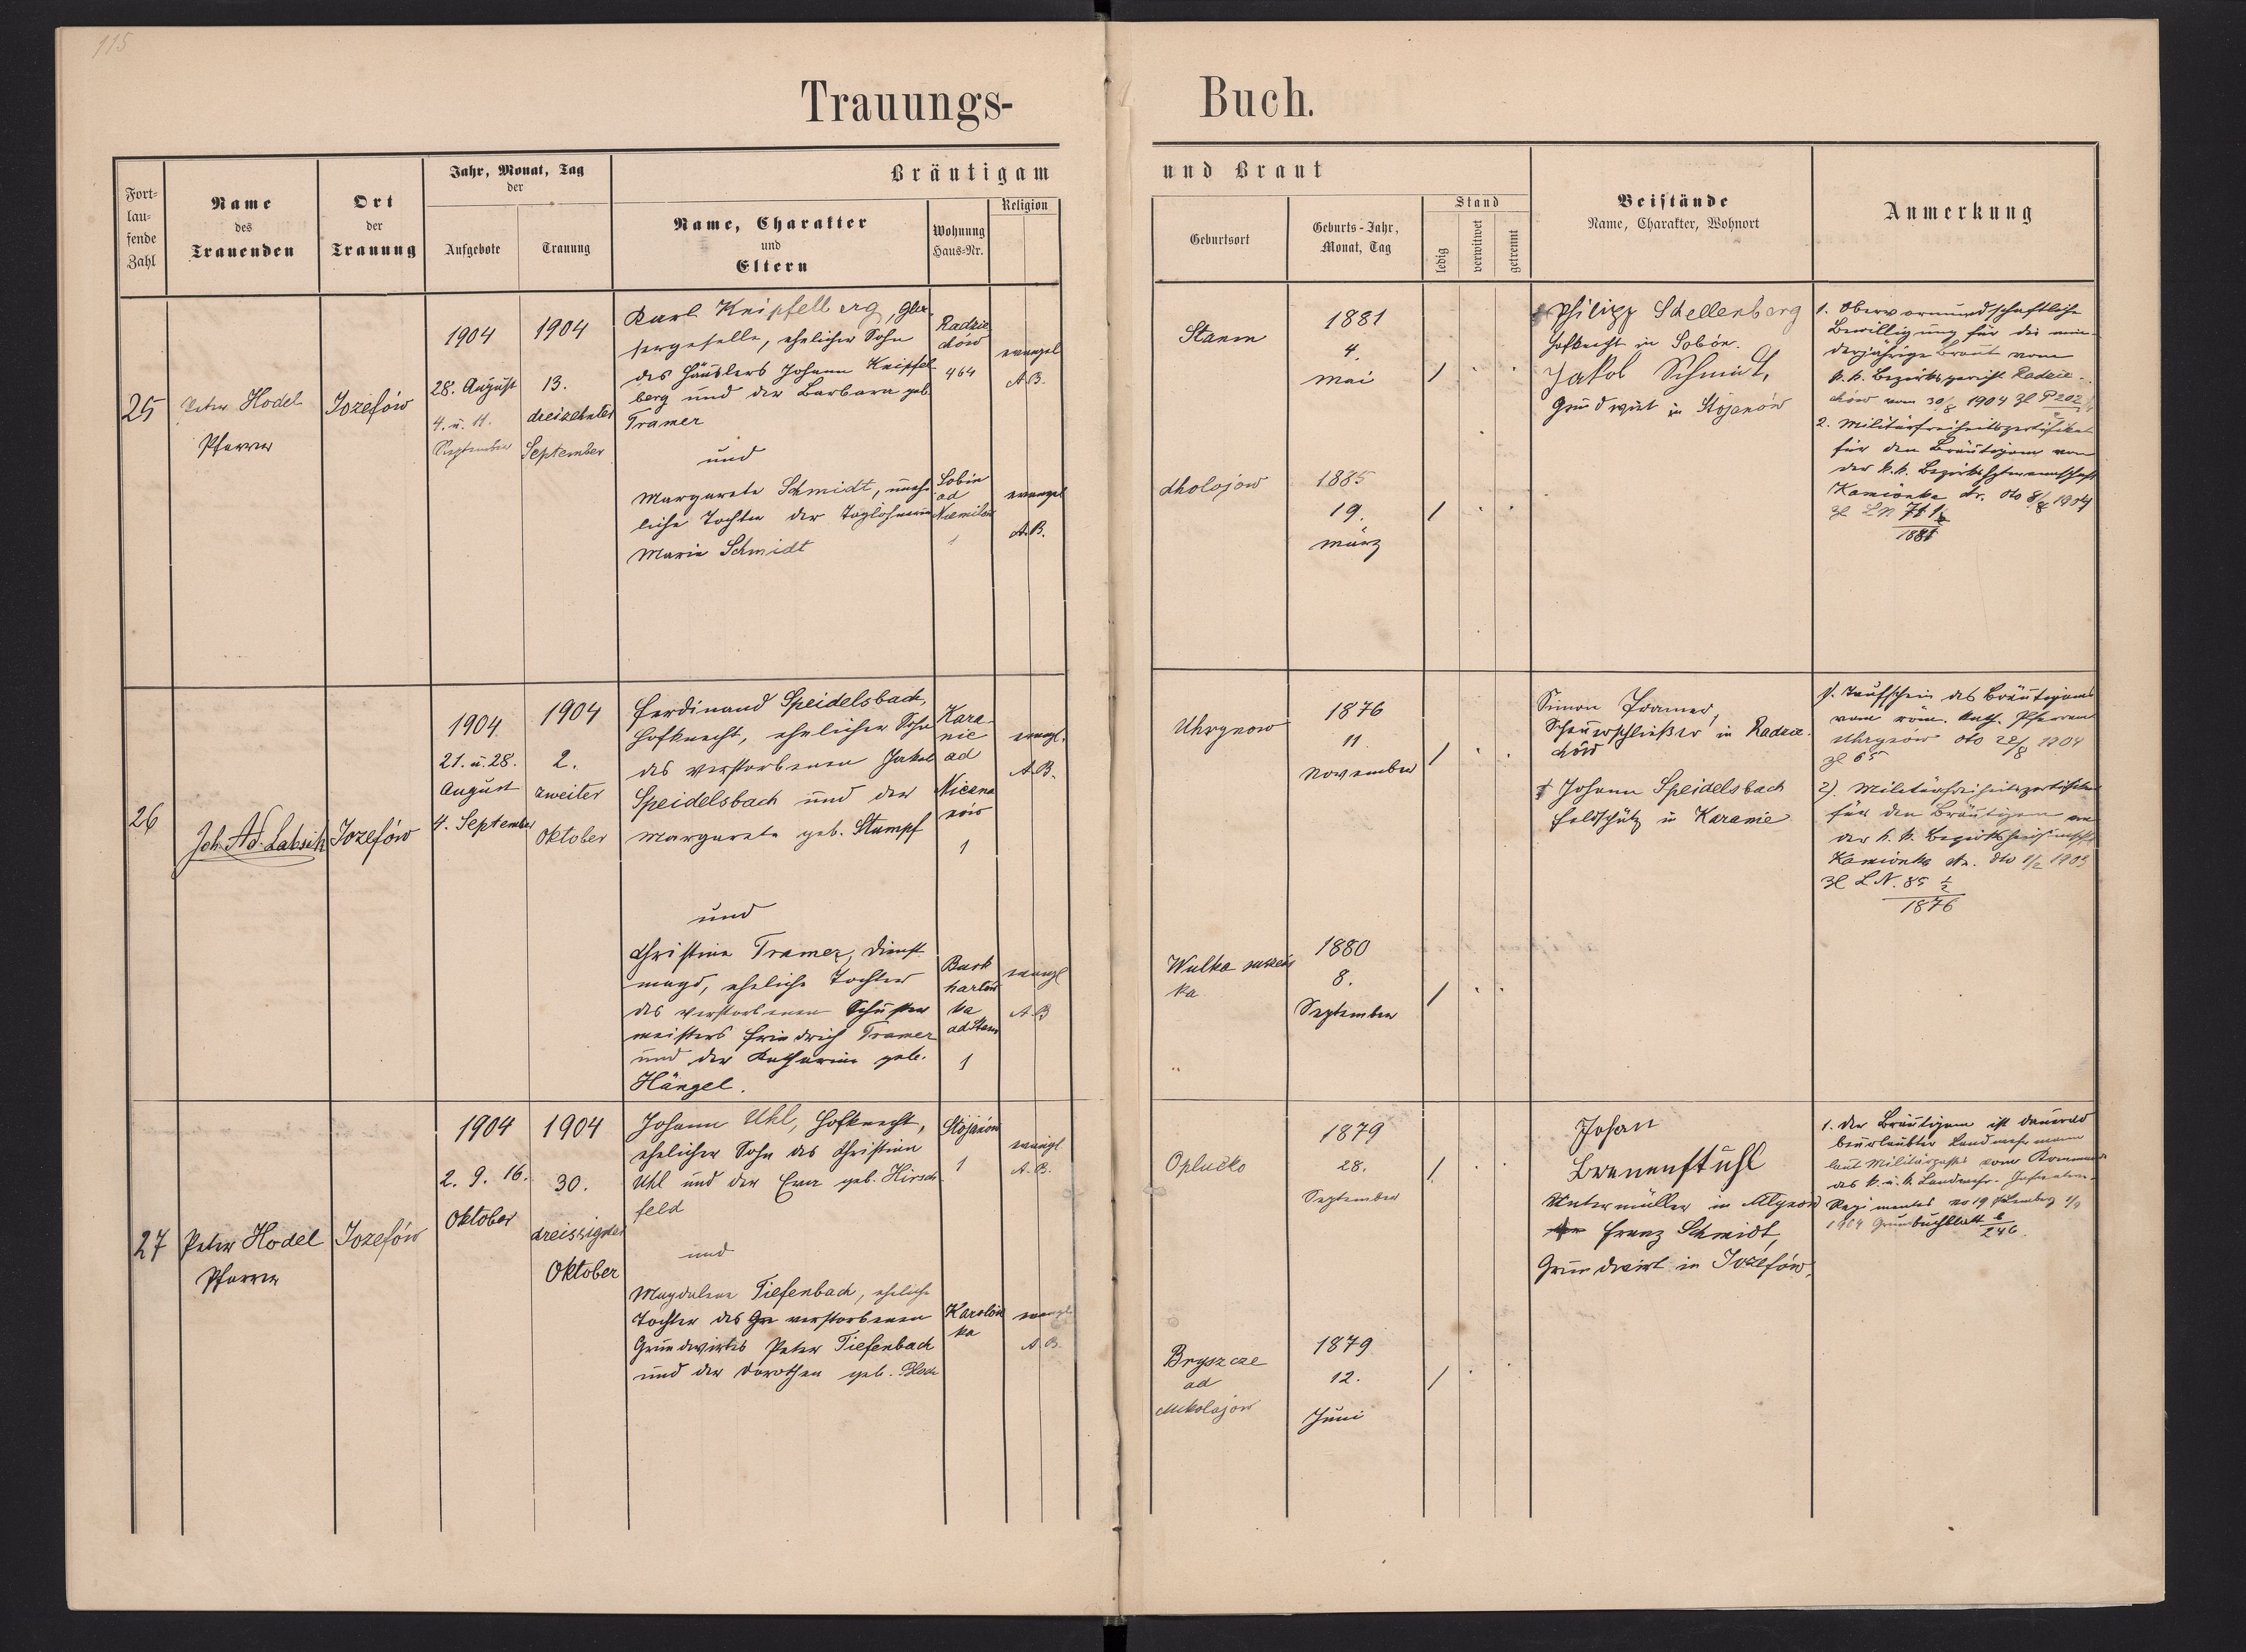 115
Trauungs- Buch.
Fort-
lau-
fende
Zahl
Name
des
Trauenden
Ort
der
Trauung
Jahr, Monat, Tag
der
Aufgebote
Trauung
Bräutigam und Braut
Name, Charakter
und
Eltern
Wohnung
Haus-Nr.
Religion
Geburtsort
Geburts-Jahr,
Monat, Tag
Stand
ledig
verwitwet
getrennt
Beistände
Name, Charakter, Wohnort
Anmerkung
25
Peter Hodel
Pfarrer
Jozefów
1904
28. August
4. u. 11.
September
1904
13.
dreizehnter
September
Karl Knipfelberg, Gla-
sergeselle, ehelicher Sohn
des Häuslers Johann Knipfel-
berg und der Barbara geb.
Tramer
und
Margarete Schmidt, unehe-
liche Tochter der Taglöhnerin
Marie Schmidt
Radzie
chów
464
evangel
A.B.
Sobin
ad
evangel
A.B.
Stanin
1881
4.
Mai
/
Cholojów
1885
19.
März
/
Philipp Schellenberg
Hofknecht in Sobin.
Jakob Schmidt,
Grundwirt in Stojanów
1. Obervormundschaftliche
Bewilligung für die min-
derjährige Braut vom
k. k. Bezirksgericht Radzie-
chów vom 30/8 1904 Zl P 202
2. Militärfreiheitszertifikat
für den Bräutigam von
der k. k. Bezirkshptmannschaft
Kamionka str. dto 8/8 1904
1881
26
Joh. Ad. Labsik
Jozefów
1904
21. u. 28.
August
4. September
1904
2.
zweiter
Oktober
Ferdinand Speidelsbach,
Hofknecht, ehelicher Sohn
des verstorbenen Jakob
Speidelsbach und der
Margarete geb. Stumpf
und
Christine Tramer, Dienst-
magd, eheliche Tochter
des verstorbenen Schuster
meisters Friedrich Tramer
und der Katharina geb.
Hängel.
Kara
nie
ad
1
evngl.
A.B.
ka
ad Stan
1
evangl
A.B
Uhrynow
1876
11.
November
/
Wulka suszeńs
ka
1880
8.
September
/
Simon Tramer,
Scheuerschließer in Radzie
chów
Johann Speidelsbach
Feldschütz in Karanie
1. Taufschein des Bräutigams
vom röm. kath. Pfarramt
Uhrynów dto 22/8 1904
Zl 65
2). Militärfreiheitszertifikat
für den Bräutigam von
der k. k. Bezirkshauptmschft
Kamionka str. dto 1/2 1903
Zl L.N. 85 1/2
1876
27
Peter Hodel
Pfarrer
Jozefów
1904
2. 9. 16.
Oktober
1904
30.
dreissigster
Oktober
Johann Uhl, Hofknecht,
ehelicher Sohn des Christian
Uhl und der Eva geb. Hirsch
feld
und
Magdalena Tiefenbach, eheliche
Tochter des Gr verstorbenen
Grundwirtes Peter Tiefenbach
und der Dorothea geb. Bloch
Stojanów
1
evangl
A.B.
Karolów
ka
evangl
A.B.
Oplucko
1879
28.
September
/
Bryszcze
ad
Mikolajow
1879
12.
Juni
/
Johan
Brenenstuhl
Untermüller in
Franz Schmidt,
Grundwirt in Jozefów,
1. Der Bräutigam ist dauernd
beurlaubter Landwehrmann
laut Militärpaß vom Kommando
des k. u. k. Landwehr-Infanterie-
Regimentes No 19 Lemberg
1904 Grundbuchblatt
246.